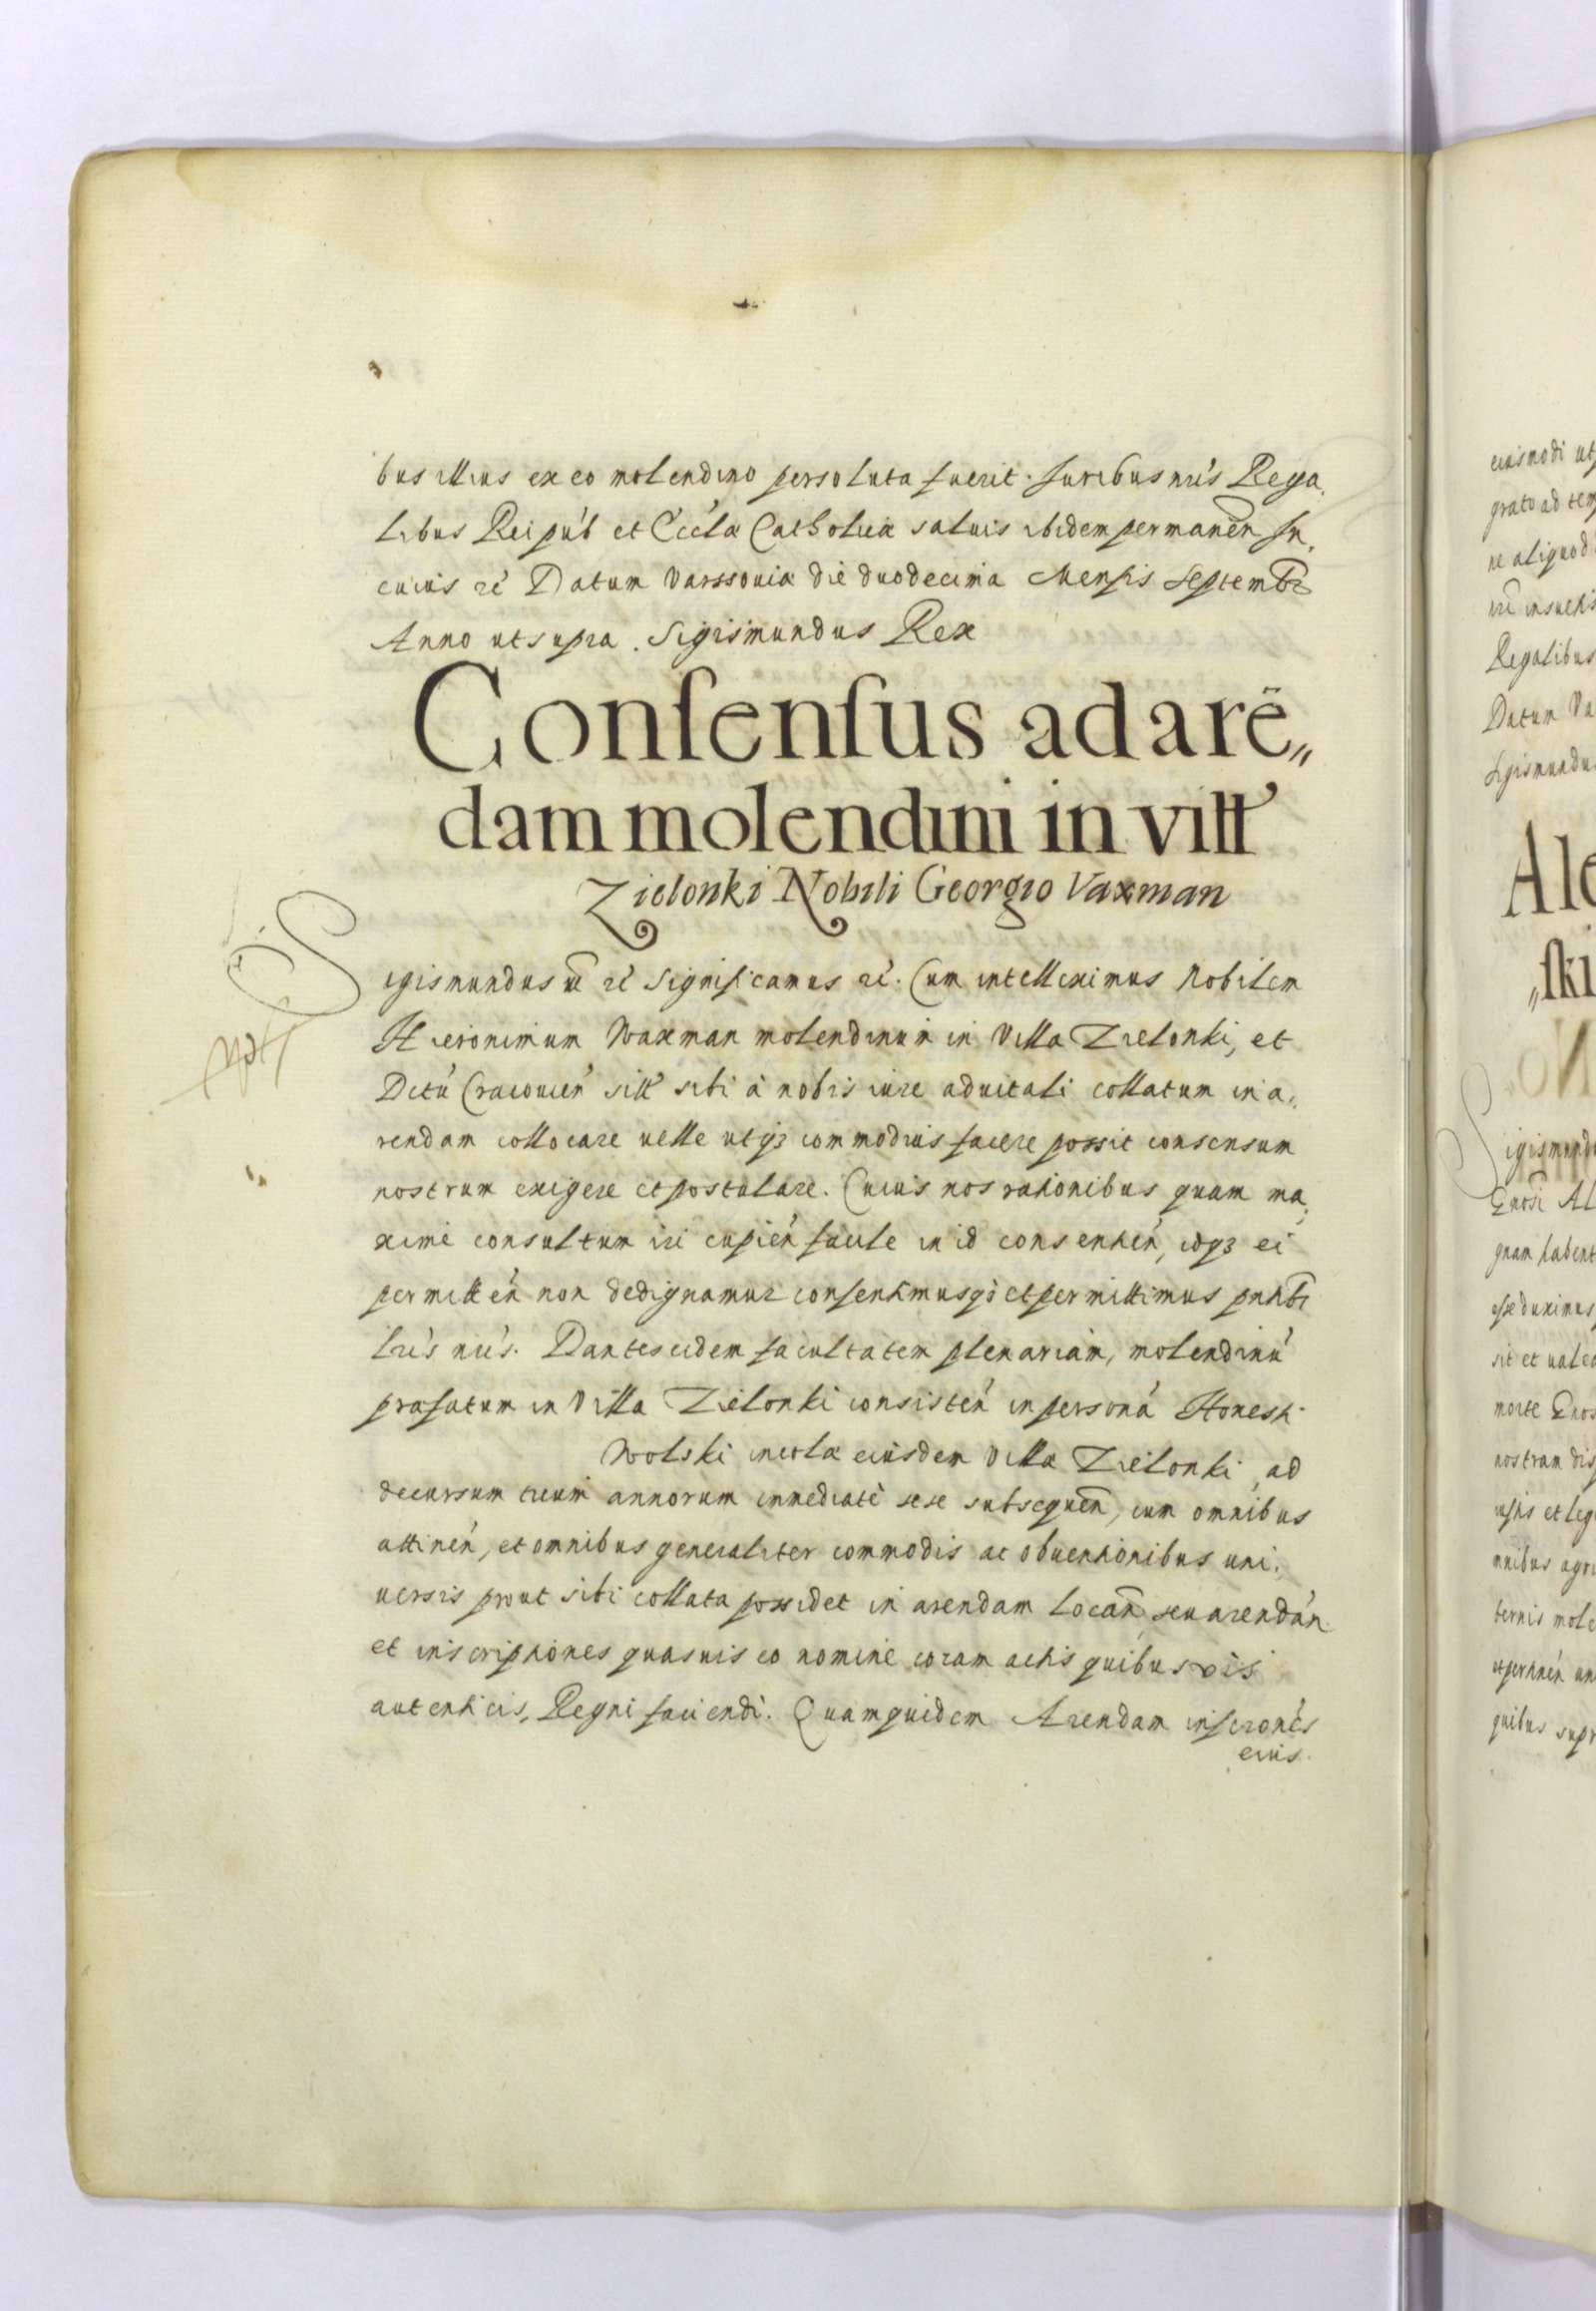 bus illius ex eo molendino persoluta fuerit. Iuribus nr̃is Rega,
libus Reipub et Eccla Catholica saluis ibidem permanen̄ In,
cuius rē Datum Varssouiæ die duodecima Mensis Septembr
Anno ut supra. Sigismundus Rex
Conſenſus ad arē„
dam molendini in vill
Zielonki Nobili Georgio Vaxman
Sigismundus rē Significamus rē. Cum intelleximus Nobilem
Hieronimum Waxman molendinum in Villa Zielonki, et
Dctu Cracouien sitt sibi à nobis iure aduitali collatum in a,
rendam collocare uelle utqз commodius facere possit consensum
nostrum exigere et postulare. Cuius nos rationibus quam ma,
ximè consultum iri cupien facile in id consentien, idqз ei
permitten non dedignamur consentimusqз et permittimus pntibr
lris nris. Dantes eidem facultatem plenariam, molendinu
præfatum in Villa Zielonki consisten in personá Honesti
Wolski incolæ eiusdem Villæ Zielonki, ad
decursum trium annorum immediatè sese subsequen̄, cum omnibus
attinen, et omnibus generaliter commodis ac obuentionibus uni,
uersis prout sibi collata possidet in arendam locan̄, seu arendan
et inscriptiones quasuis eo nomine coram actis quibusvis
autenticis, Regni faciendi. Quamquidem Arendam inscrones
eius.
eiusmodi ut
grato ad tem
ne aliquod
Regalibus
Datum Va
Sigismundu
Ale
„ſki
Sigismundu
Al
quam habent
esse duximus
sit et ualea
morte
nostram dis
et leg
ternis mole
quibus supr